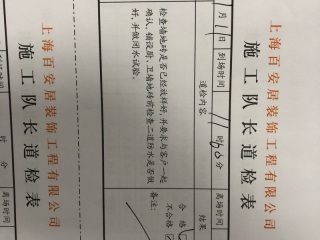 上海百安居装饰工程有限公司
施工队长道检表
月 日 到场时间 11 时 分 离场时间
道检内容 结果
检查墙地砖是否已经放样好，并要求与客户一起
确认。铺设厨、卫墙地砖前检查二道防水是否做
好，并做闭水试验。
合格
不合格
备注：
上海百安居装饰工程有限公司
施工队长道检表
时 分 离场时间